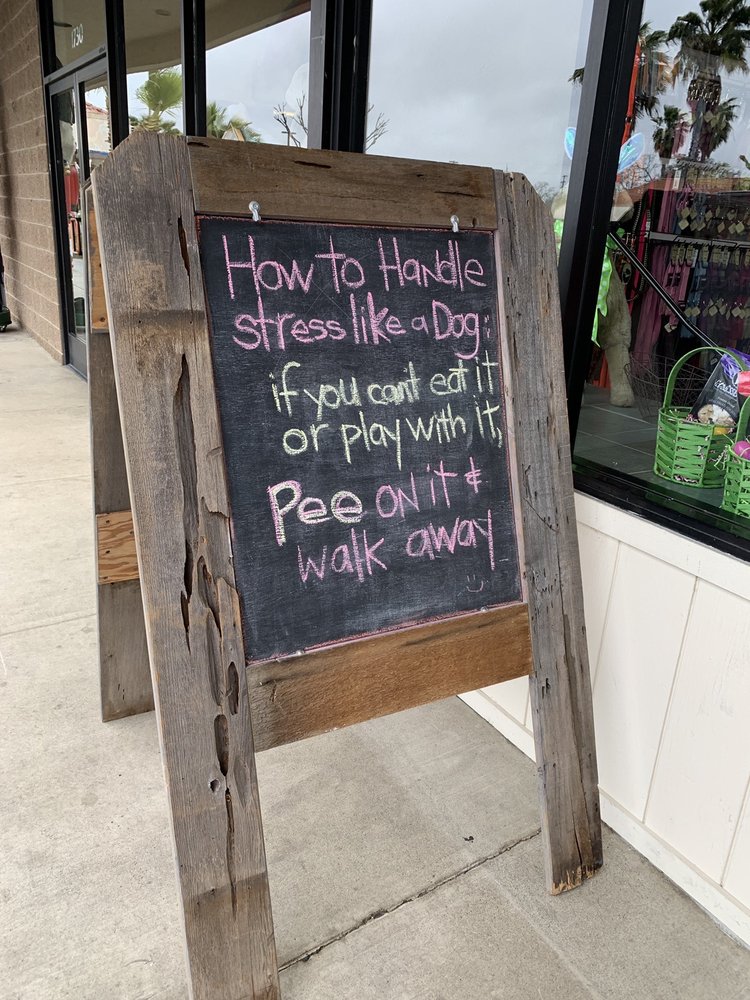 1730
How to Handle
stress like a Dog:
if you can't eat it
or play with it,
Pee on it &
walk away